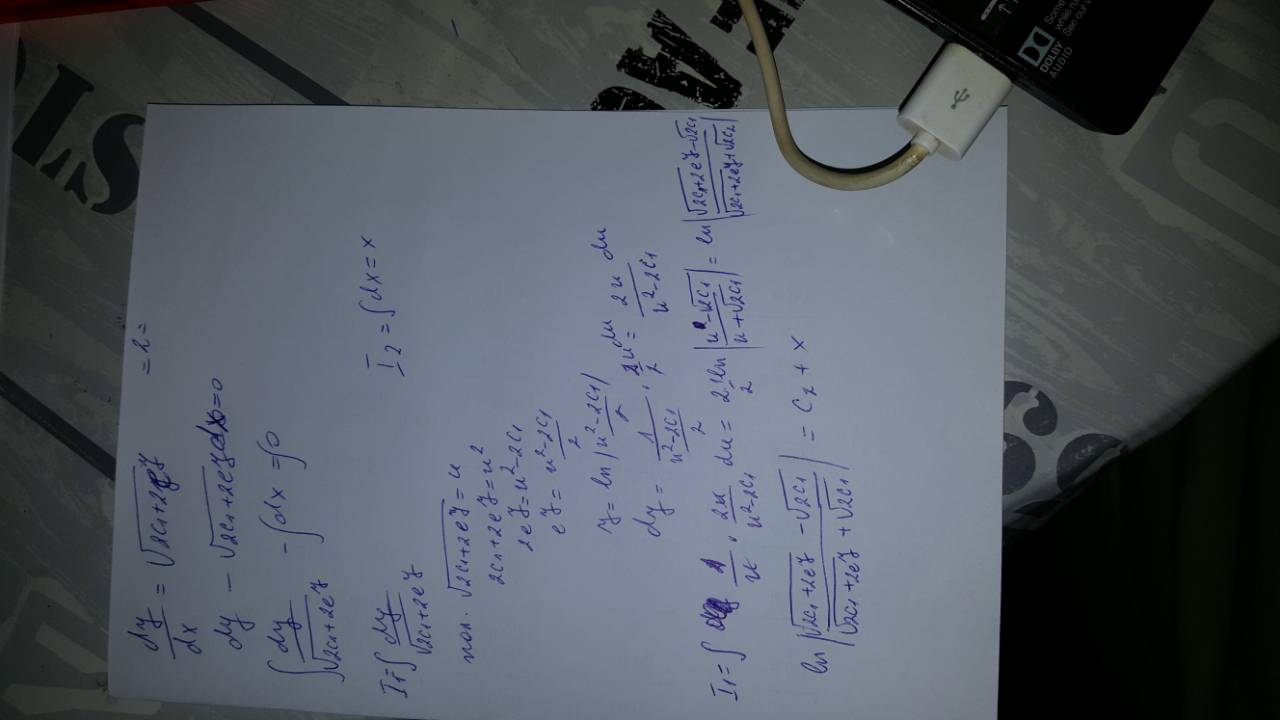 dy/dx = √(2c₁+2e^y) =2=
dy - √(2c₁+2e^y) dx=0
∫ dy/√(2c₁+2e^y) - ∫dx = ∫0
I₁=∫ dy/√(2c₁+2e^y) I₂ = ∫dx = x
пол. √(2c₁+2e^y) = u
2c₁+2e^y = u²
2e^y = u²-2c₁
e^y = (u²-2c₁)/2
y = ln |(u²-2c₁)/2|
dy = 1/((u²-2c₁)/2) · 2u/2 du = 2u/(u²-2c₁) du
I₁ = ∫ 1/u · 2u/(u²-2c₁) du = 2·1/2 ln |(u-√2c₁)/(u+√2c₁)| = ln |(√(2c₁+2e^y)-√2c₁)/(√(2c₁+2e^y)+√2c₂)|
ln |(√(2c₁+2e^y) - √2c₁)/(√(2c₁+2e^y) + √2c₁)| = c₂ + x
DOLBY
AUDIO
while
See our